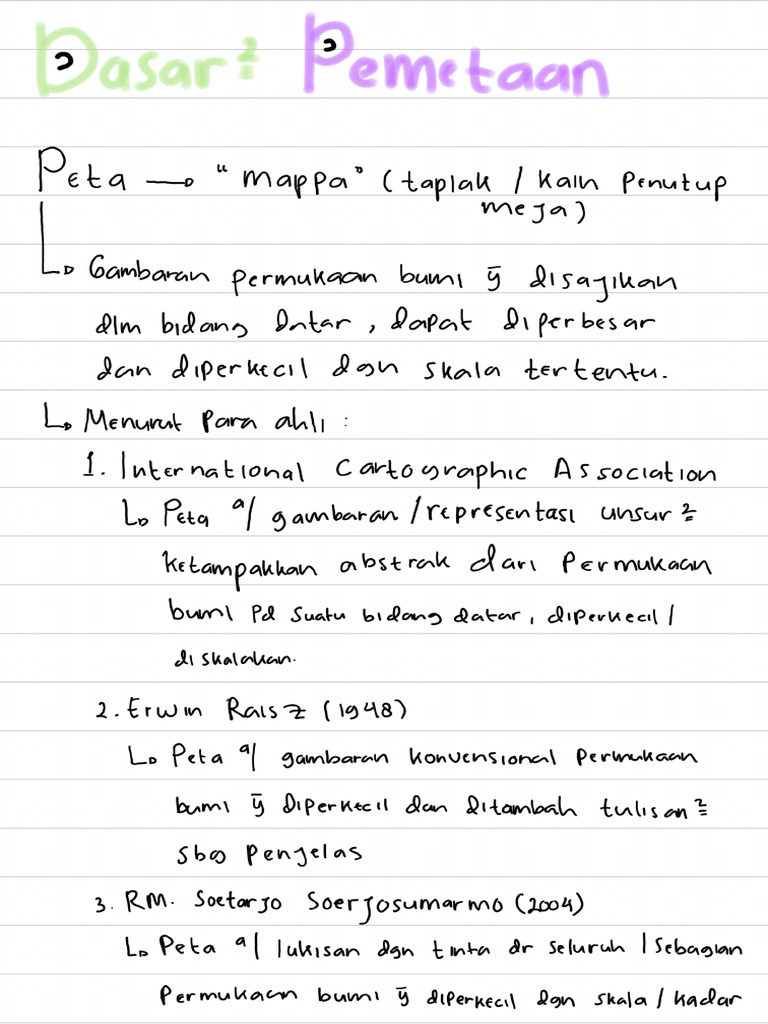 Dasar² Pemetaan
Peta → "mappa" (taplak / kain penutup
meja)
↳ Gambaran permukaan bumi ȳ disajikan
dlm bidang datar, dapat diperbesar
dan diperkecil dgn skala tertentu.
↳ Menurut para ahli :
1. International Cartographic Association
↳ Peta a/ gambaran / representasi unsur²
ketampakkan abstrak dari permukaan
bumi pd suatu bidang datar, diperkecil /
diskalakan.
2. Erwin Raisz (1948)
↳ Peta a/ gambaran konvensional permukaan
bumi ȳ diperkecil dan ditambah tulisan²
sbg penjelas
3. RM. Soetarjo Soerjosumarmo (2004)
↳ Peta a/ lukisan dgn tinta dr seluruh / sebagian
permukaan bumi ȳ diperkecil dgn skala / kadar